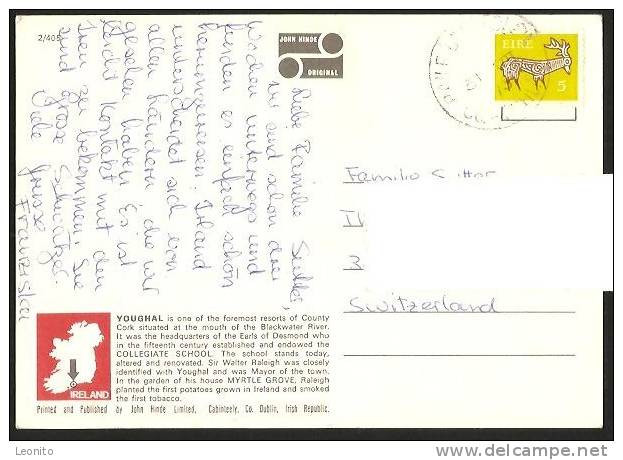 2/405
JOHN HINDE
ORIGINAL
EIRE
5
Liebe Familie Sutter,
wir sind schon drei
Wochen unterwegs und
finden es einfach schön
herumzureisen. Irland
unterscheidet sich von
allen Ländern die wir
gesehen haben. Es ist
leicht Kontakt mit den
Iren zu bekommen. Sie
sind grosse Schwätzer.
liebe Grüsse
Franziska
Familie Sutter
Switzerland
YOUGHAL is one of the foremost resorts of County
Cork situated at the mouth of the Blackwater River.
It was the headquarters of the Earls of Desmond who
in the fifteenth century established and endowed the
COLLEGIATE SCHOOL. The school stands today,
altered and renovated. Sir Walter Raleigh was closely
identified with Youghal and was Mayor of the town.
In the garden of his house MYRTLE GROVE, Raleigh
planted the first potatoes grown in Ireland and smoked
the first tobacco.
IRELAND
Printed and Published by John Hinde Limited, Cabinteely, Co. Dublin, Irish Republic.
Leonito
delcampe.net